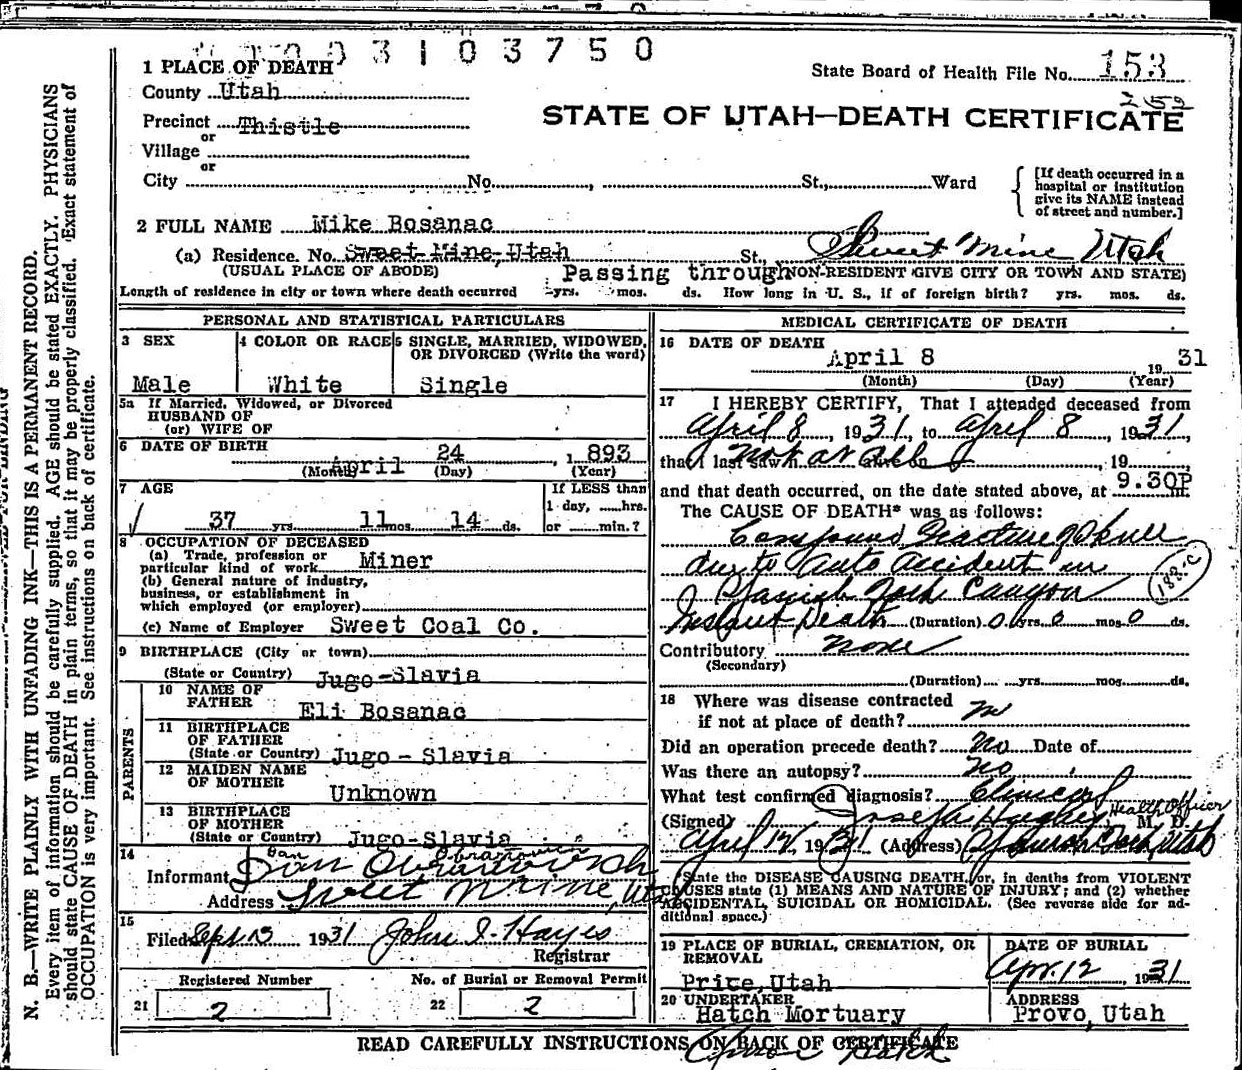 003103750
1 PLACE OF DEATH
State Board of Health File No. 153
County Utah
252
STATE OF UTAH—DEATH CERTIFICATE
Precinct Thistle
or
Village
or
City No. , St., Ward
[If death occurred in a
hospital or institution
give its NAME instead
of street and number.]
2 FULL NAME Mike Bosanac
(a) Residence. No. Sweet Mine, Utah St., Sweet Mine Utah
(USUAL PLACE OF ABODE) Passing through NON-RESIDENT GIVE CITY OR TOWN AND STATE)
Length of residence in city or town where death occurred yrs. mos. ds. How long in U. S., if of foreign birth? yrs. mos. ds.
PERSONAL AND STATISTICAL PARTICULARS
3 SEX
4 COLOR OR RACE
5 SINGLE, MARRIED, WIDOWED,
OR DIVORCED (Write the word)
Male White Single
5a If Married, Widowed, or Divorced
HUSBAND OF
(or) WIFE OF
6 DATE OF BIRTH
April 24, 1893
(Month) (Day) (Year)
7 AGE
If LESS than
1 day, hrs.
or min.?
37 yrs 11 mos. 14 ds.
8 OCCUPATION OF DECEASED
(a) Trade, profession or
particular kind of work Miner
(b) General nature of industry,
business, or establishment in
which employed (or employer)
(c) Name of Employer Sweet Coal Co.
9 BIRTHPLACE (City or town)
(State or Country) Jugo-Slavia
PARENTS
10 NAME OF
FATHER Eli Bosanac
11 BIRTHPLACE
OF FATHER
(State or Country) Jugo-Slavia
12 MAIDEN NAME
OF MOTHER Unknown
13 BIRTHPLACE
OF MOTHER
(State or Country) Jugo-Slavia
14
Informant Dan
Address Sweet Mine, Utah
15
Filed Sept 15 1931 John I. Hayes
Registrar
Registered Number
21 2
No. of Burial or Removal Permit
22 2
MEDICAL CERTIFICATE OF DEATH
16 DATE OF DEATH
April 8 1931
(Month) (Day) (Year)
17 I HEREBY CERTIFY, That I attended deceased from
April 8, 1931, to April 8, 1931,
that I last saw h Not at all alive on , 19
and that death occurred, on the date stated above, at 9.30P m.
The CAUSE OF DEATH* was as follows:
Compound Fracture of Skull
due to Auto Accident in
Spanish Fork Canyon
188-c
Instant Death (Duration) 0 yrs. 0 mos. 0 ds.
Contributory none
(Secondary)
(Duration) yrs. mos. ds.
18 Where was disease contracted
if not at place of death?
Did an operation precede death? No Date of
Was there an autopsy? no
What test confirmed diagnosis? Clinical
Health Officer
(Signed) Joseph Hughes, M. D.
April 12, 1931 (Address) Spanish Fork, Utah
State the DISEASE CAUSING DEATH, or, in deaths from VIOLENT
CAUSES state (1) MEANS AND NATURE OF INJURY; and (2) whether
ACCIDENTAL, SUICIDAL OR HOMICIDAL. (See reverse side for ad-
ditional space.)
19 PLACE OF BURIAL, CREMATION, OR
REMOVAL
Price, Utah
DATE OF BURIAL
Apr. 12 1931
20 UNDERTAKER
Hatch Mortuary
ADDRESS
Provo, Utah
READ CAREFULLY INSTRUCTIONS ON BACK OF CERTIFICATE
N. B.—WRITE PLAINLY WITH UNFADING INK—THIS IS A PERMANENT RECORD.
Every item of information should be carefully supplied. AGE should be stated EXACTLY. PHYSICIANS
should state CAUSE OF DEATH in plain terms, so that it may be properly classified. Exact statement of
OCCUPATION is very important. See instructions on back of certificate.